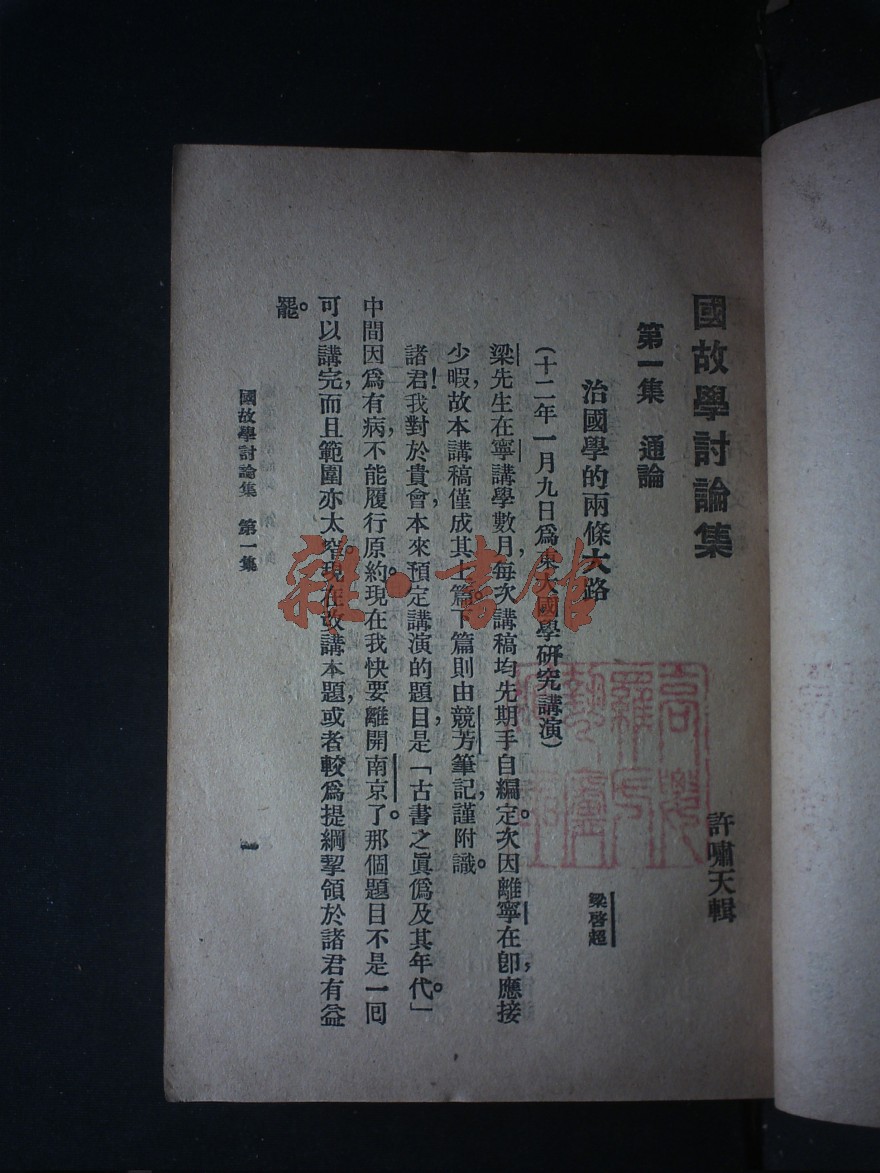 國故學討論集
許嘯天輯
第一集 通論
治國學的兩條大路
梁啓超
(十二年一月九日爲東大國學研究講演)
梁先生在寧講學數月,每次講稿均先期手自編定。次因離寧在卽,應接
少暇,故本講稿僅成其上篇。下篇則由競芳筆記,謹附識。
諸君!我對於貴會,本來預定講演的題目是「古書之眞僞及其年代」。
中間因爲有病,不能履行原約。現在我快要離開南京了,那個題目不是一回
可以講完,而且範圍亦太窄。現在改講本題,或者較爲提綱挈領於諸君有益
罷。
國故學討論集 第一集
一
雜·書館